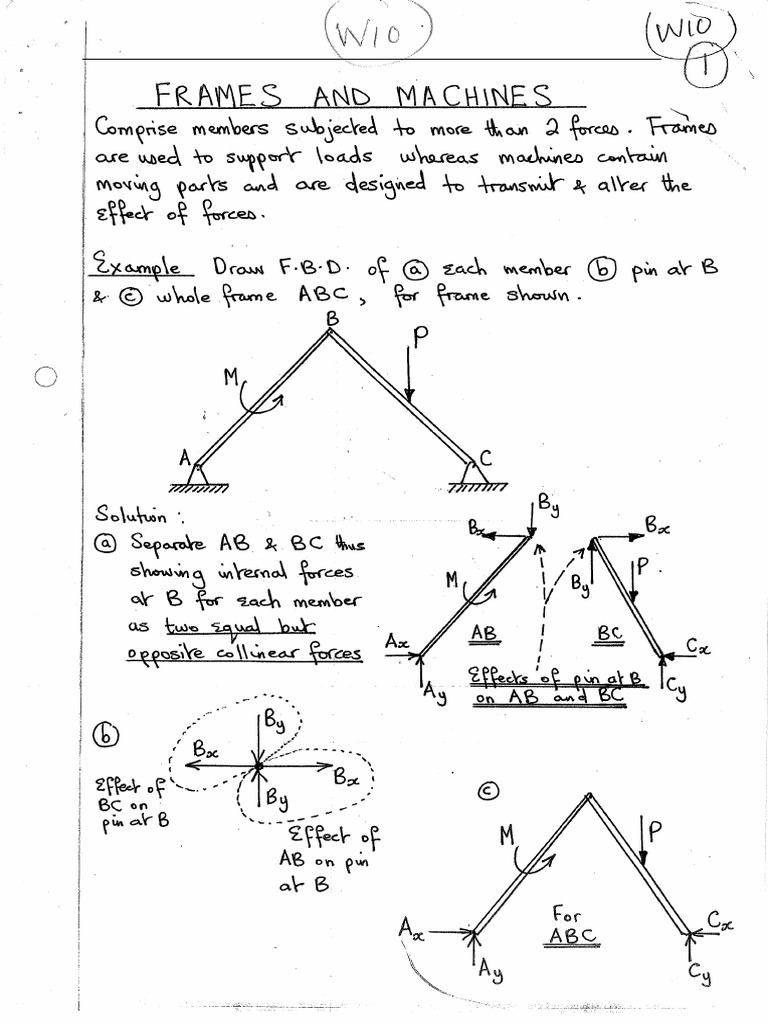 W10
W10
1
FRAMES AND MACHINES
Comprise members subjected to more than 2 forces. Frames
are used to support loads whereas machines contain
moving parts and are designed to transmit & alter the
effect of forces.
Example Draw F.B.D. of ⓐ each member ⓑ pin at B
& ⓒ whole frame ABC, for frame shown.
B
P
M
A
C
Solution:
ⓐ Separate AB & BC thus
showing internal forces
at B for each member
as two equal but
opposite collinear forces
By
Bx
Bx
By
P
M
AB
BC
Ax
Cx
Ay
Cy
Effects of pin at B
on AB and BC
ⓑ
By
Bx
Bx
By
Effect of
BC on
pin at B
Effect of
AB on pin
at B
ⓒ
M
P
For
ABC
Ax
Cx
Ay
Cy